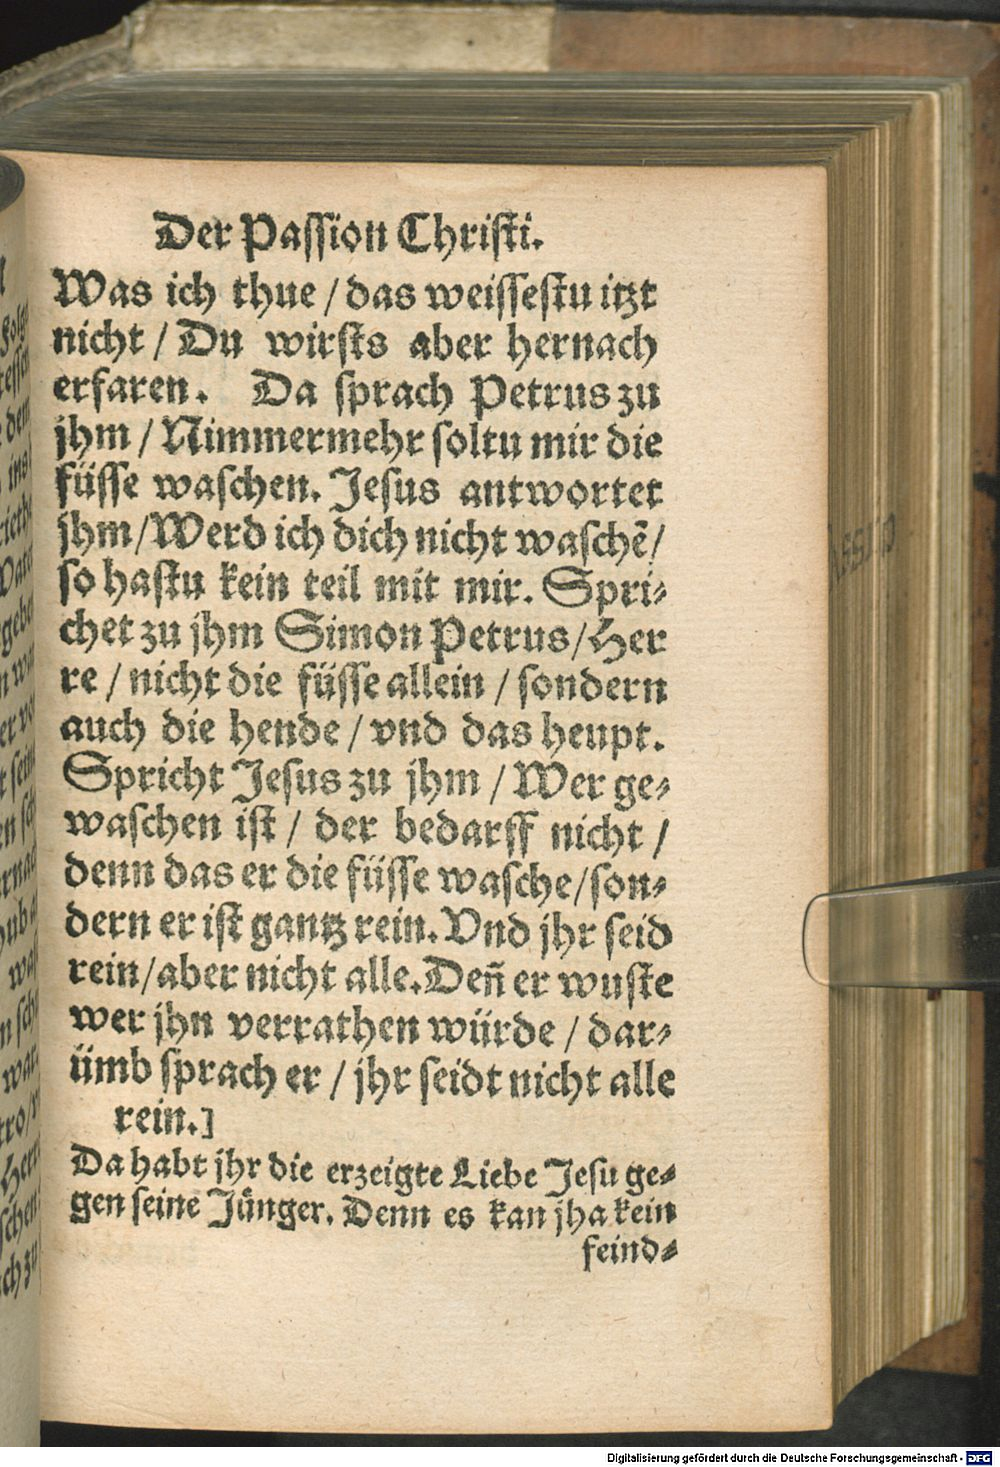 Der Passion Christi.
Was ich thue / das weissestu itzt
nicht / Du wirsts aber hernach
erfaren. Da sprach Petrus zu
jhm / Nimmermehr soltu mir die
füsse waschen. Jesus antwortet
jhm / Werd ich dich nicht waschẽ /
so hastu kein teil mit mir. Spri-
chet zu jhm Simon Petrus / Her
re / nicht die füsse allein / sondern
auch die hende / vnd das heupt.
Spricht Jesus zu jhm / Wer ge-
waschen ist / der bedarff nicht /
denn das er die füsse wasche / son-
dern er ist gantz rein. Vnd jhr seid
rein / aber nicht alle. Deñ er wuste
wer jhn verrathen würde / dar-
ümb sprach er / jhr seidt nicht alle
rein.]
Da habt jhr die erzeigte Liebe Jesu ge-
gen seine Jünger. Denn es kan jha kein
feind-
Digitalisierung gefördert durch die Deutsche Forschungsgemeinschaft - DFG